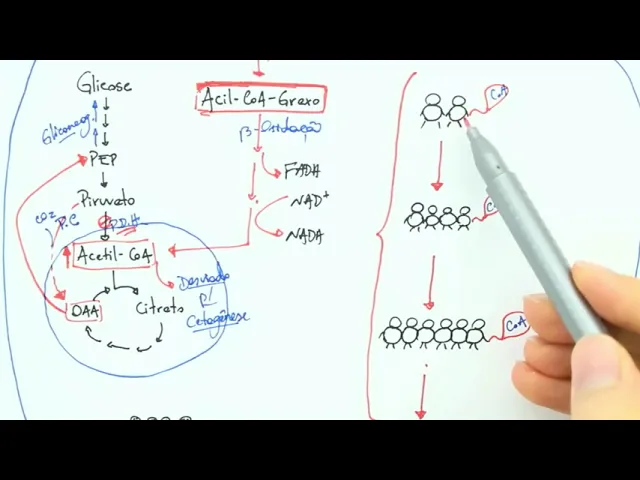 Glicose
Gliconeog.
PEP
Piruvato
CO2
P.C
P.D.H
Acetil-CoA
OAA
Citrato
Desviado
p/
Cetogênese
Acil-CoA-Graxo
β-oxidação
FADH
NAD+
NADA
CoA
CoA